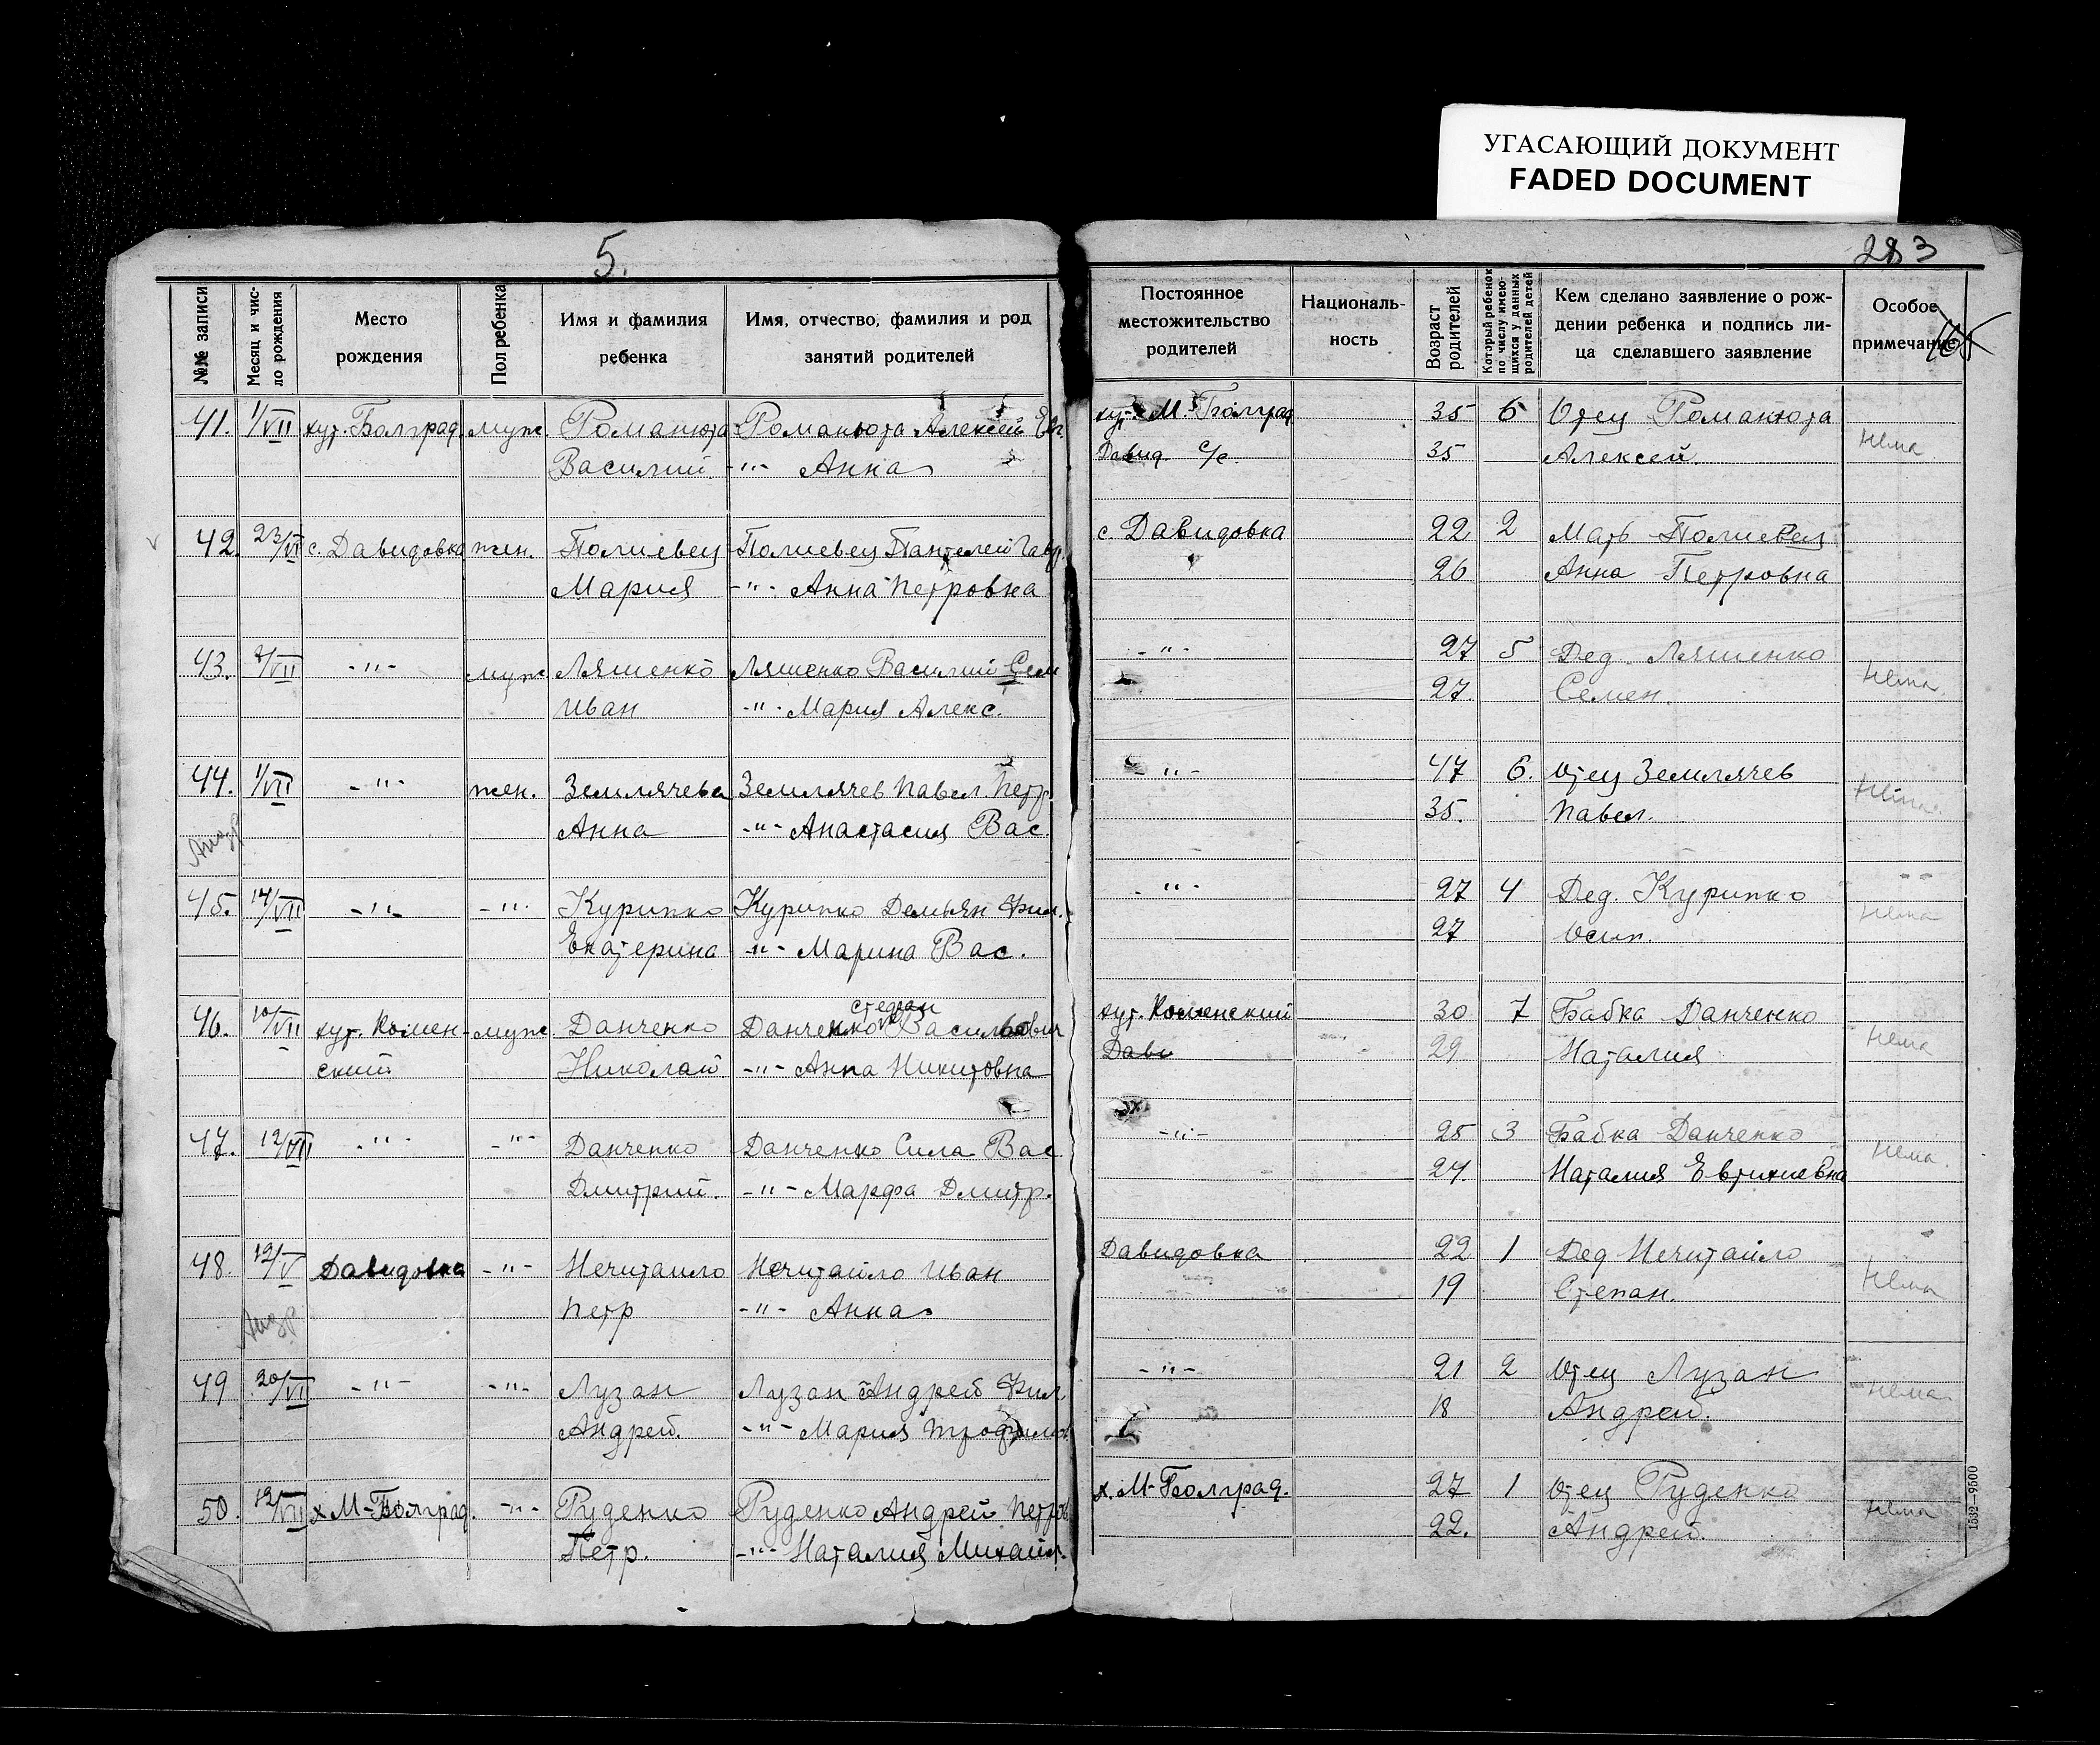 УГАСАЮЩИЙ ДОКУМЕНТ
FADED DOCUMENT
5.
283
№№ записи
Месяц и чис-
ло рождения
Место
рождения
Пол ребенка
Имя и фамилия
ребенка
Имя, отчество, фамилия и род
занятий родителей
Постоянное
местожительство
родителей
Националь-
ность
Возраст
родителей
Который ребенок
по числу имею-
щихся у данных
родителей детей
Кем сделано заявление о рож-
дении ребенка и подпись ли-
ца сделавшего заявление
Особое
примечание
165
41. 1/VII хут. Болград. муж. Романюта Романюта Алексей хут. М. Болград 35 6 Отец Романюта
Василий -"- Анна Давид. с/с. 35 Алексей. Нема
42. 23/VI с. Давидовка жен. Полиевец Полиевец Пантелей Гавр. с. Давидовка 22 2 Мать Полиевец
Мария -"- Анна Петровна 26 Анна Петровна
43. 2/VII -"- муж. Ляшенко Ляшенко Василий Сем -"- 27 5 Дед. Ляшенко
Иван -"- Мария Алекс. 27. Семен. Нема.
44. 1/VII -"- жен. Землячева Землячев Павел Петр. -"- 47 6. Отец Землячев
Анна -"- Анастасия Вас. 35. Павел. Нема.
45. 14/VII -"- -"- Курипко Курипко Демьян Фил. -"- 27 4 Дед. Курипко
Екатерина -"- Марина Вас. 27 Осип. Нема
степан
46. 10/VII хут. Комен- муж. Данченко Данченко Васильович хут. Коменский 30 7 Бабка Данченко
ский Николай -"- Анна Никитовна Даве 29 Наталия Нема
47. 12/VII -"- -"- Данченко Данченко Сила Вас -"- 25 3 Бабка Данченко
Дмитрий. -"- Марфа Дмитр. 27. Наталия Евтихиевна Нема.
48. 12/V Давидовка -"- Нечитайло Нечитайло Иван Давидовка 22 1 Дед Нечитайло
Петр -"- Анна. 19 Степан. Нема
49 20/VI -"- -"- Лузан Лузан Андрей Фил. -"- 21 2 Отец Лузан
Андрей. -"- Мария Трофимов. 18 Андрей. Нема
50. 12/VII х М-Болград. -"- Руденко Руденко Андрей Петров. х. М-Болград. 27 1 Отец Руденко
Петр. -"- Наталия Михайл. 22. Андрей. Нема
1532—9600